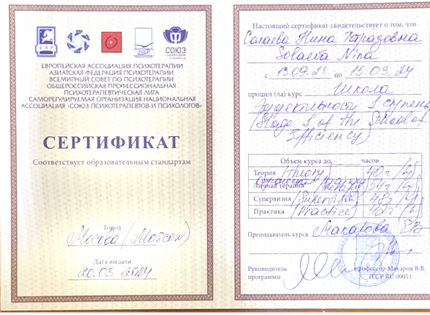 СОЮЗ
ЕВРОПЕЙСКАЯ АССОЦИАЦИЯ ПСИХОТЕРАПИИ
АЗИАТСКАЯ ФЕДЕРАЦИЯ ПСИХОТЕРАПИИ
ВСЕМИРНЫЙ СОВЕТ ПО ПСИХОТЕРАПИИ
ОБЩЕРОССИЙСКАЯ ПРОФЕССИОНАЛЬНАЯ
ПСИХОТЕРАПЕВТИЧЕСКАЯ ЛИГА
САМОРЕГУЛИРУЕМАЯ ОРГАНИЗАЦИЯ НАЦИОНАЛЬНАЯ
АССОЦИАЦИЯ «СОЮЗ ПСИХОТЕРАПЕВТОВ И ПСИХОЛОГОВ»
СЕРТИФИКАТ
Соответствует образовательным стандартам
Город
Москва (Moscow)
Дата выдачи
20.03.2024
Настоящий сертификат свидетельствует о том, что
Нина
Nina
с по 15.03.24
прошел (ла) курс Школа
1 ступень
(Stage 1 of the School of
Efficiency)
Объем курса до часов
Теория (Theory) 40 г
Личная терапия
Супервизия
Практика (Practice)
Преподаватель курса Макарова
Руководитель
программы
профессор Макаров В.В.